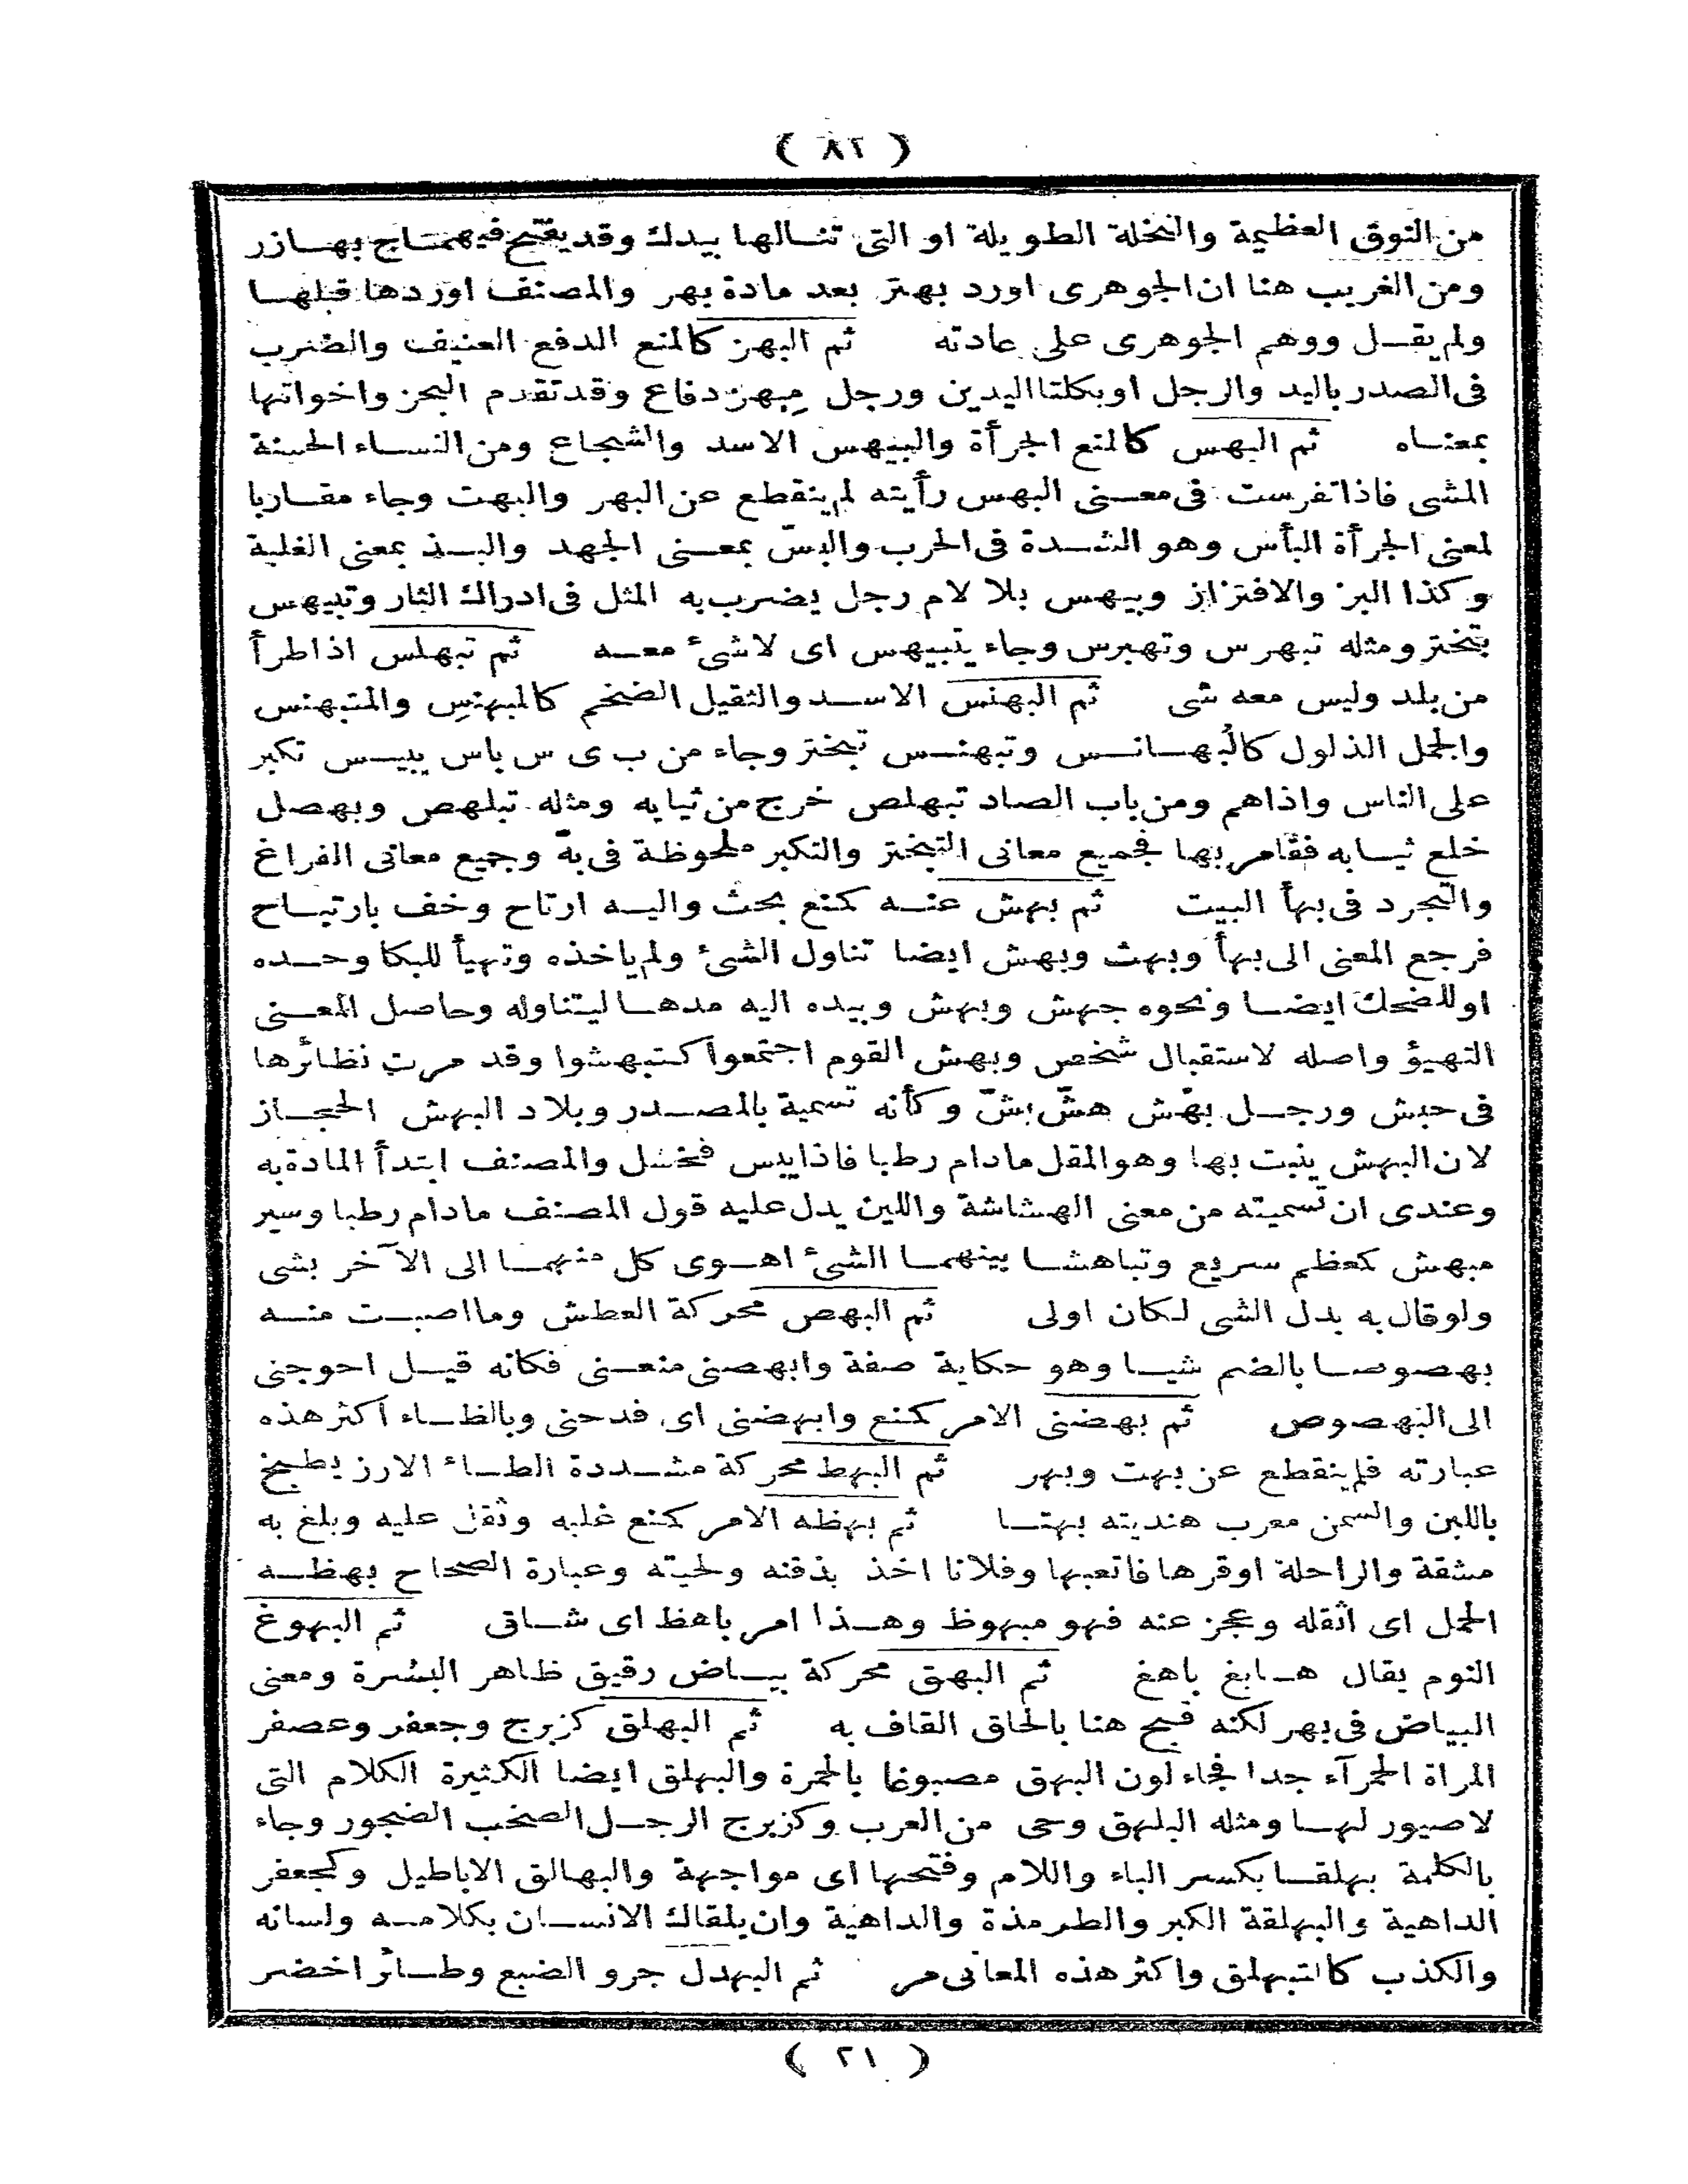 ( ٨٢ )
من النوق العظيمة والنخلة الطويلة او التى تنالها بيدك وقد يفتح فيهما ج بهازر
ومن الغريب هنا ان الجوهرى اورد بهتر بعد مادة بهر والمصنف اوردها قبلها
ولم يقل ووهم الجوهرى على عادته ثم البهز كالمنع الدفع العنيف والضرب
فى الصدر باليد والرجل او بكلتا اليدين ورجل مبهز دفاع وقد تقدم البحز واخواتها
بمعناه ثم البهس كالمنع الجرأة والبيهس الاسد والشجاع ومن النساء الحسنة
المشى فاذا تفرست فى معنى البهس رأيته لم ينقطع عن البهر والبهت وجاء مقاربا
لمعنى الجرأة البأس وهو الشدة فى الحرب والبسّ بمعنى الجهد والبذ بمعنى الغلبة
وكذا البز والافتزاز وبيهس بلا لام رجل يضرب به المثل فى ادراك الثار وتبيهس
تبختر ومثله تبهرس وتهبرس وجاء يتبيهس اى لا شىء معه ثم تبهلس اذا طرأ
من بلد وليس معه شى ثم البهنس الاسد والثقيل الضخم كالمبهنس والمتبهنس
والجمل الذلول كالبُهانس وتبهنس تبختر وجاء من ب ى س باس يبيس تكبر
على الناس واذاهم ومن باب الصاد تبهلص خرج من ثيابه ومثله تبلهص وبهصل
خلع ثيابه فقامر بها فجميع معانى التبختر والتكبر ملحوظة فى بهّ وجميع معانى الفراغ
والتجرد فى بهأ البيت ثم بهش عنه كمنع بحث واليه ارتاح وخف بارتياح
فرجع المعنى الى بهأ وبهث وبهش ايضا تناول الشىء ولم ياخذه وتهيأ للبكا وحده
او للضحك ايضا ونحوه جهش وبهش وبيده اليه مدها ليتناوله وحاصل المعنى
التهيؤ واصله لاستقبال شخص وبهش القوم اجتمعوا كتبهشوا وقد مرت نظائرها
فى حبش ورجل بهّش هشّ بشّ وكأنه تسمية بالمصدر وبلاد البهش الحجاز
لان البهش ينبت بها وهو المقل مادام رطبا فاذا يبس فخشل والمصنف ابتدأ المادة به
وعندى ان تسميته من معنى الهشاشة واللين يدل عليه قول المصنف مادام رطبا وسير
مبهش كعظم سريع وتباهشا بينهما الشىء اهوى كل منهما الى الآخر بشى
ولو قال به بدل الشى لكان اولى ثم البهص محركة العطش وما اصبت منه
بهصوصا بالضم شيا وهو حكاية صفة وابهصنى منعنى فكانه قيل احوجنى
الى البهصوص ثم بهضنى الامر كمنع وابهضنى اى فدحنى وبالظاء اكثر هذه
عبارته فلم ينقطع عن بهت وبهر ثم البهط محركة مشددة الطاء الارز يطبخ
باللبن والسمن معرب هنديته بهتا ثم بهظه الامر كمنع غلبه وثقل عليه وبلغ به
مشقة والراحلة اوقرها فاتعبها وفلانا اخذ بذقنه ولحيته وعبارة الصحاح بهظه
الحمل اى اثقله وعجز عنه فهو مبهوظ وهذا امر باهظ اى شاق ثم البهوغ
النوم يقال هابغ باهغ ثم البهق محركة بياض رقيق ظاهر البشرة ومعنى
البياض فى بهر لكنه قبح هنا بالحاق القاف به ثم البهلق كزبرج وجعفر وعصفر
المراة الحمرآء جدا فجاء لون البهق مصبوغا بالحمرة والبهلق ايضا الكثيرة الكلام التى
لا صيور لها ومثله البلهق وحى من العرب وكزبرج الرجل الصخب الضجور وجاء
بالكلمة بهلقا بكسر الباء واللام وفتحها اى مواجهة والبهالق الاباطيل وكجعفر
الداهية والبهلقة الكبر والطرمذة والداهية وان يلقاك الانسان بكلامه ولسانه
والكذب كالتبهلق واكثر هذه المعانى مر ثم البهدل جرو الضبع وطائر اخضر
( ٢١ )